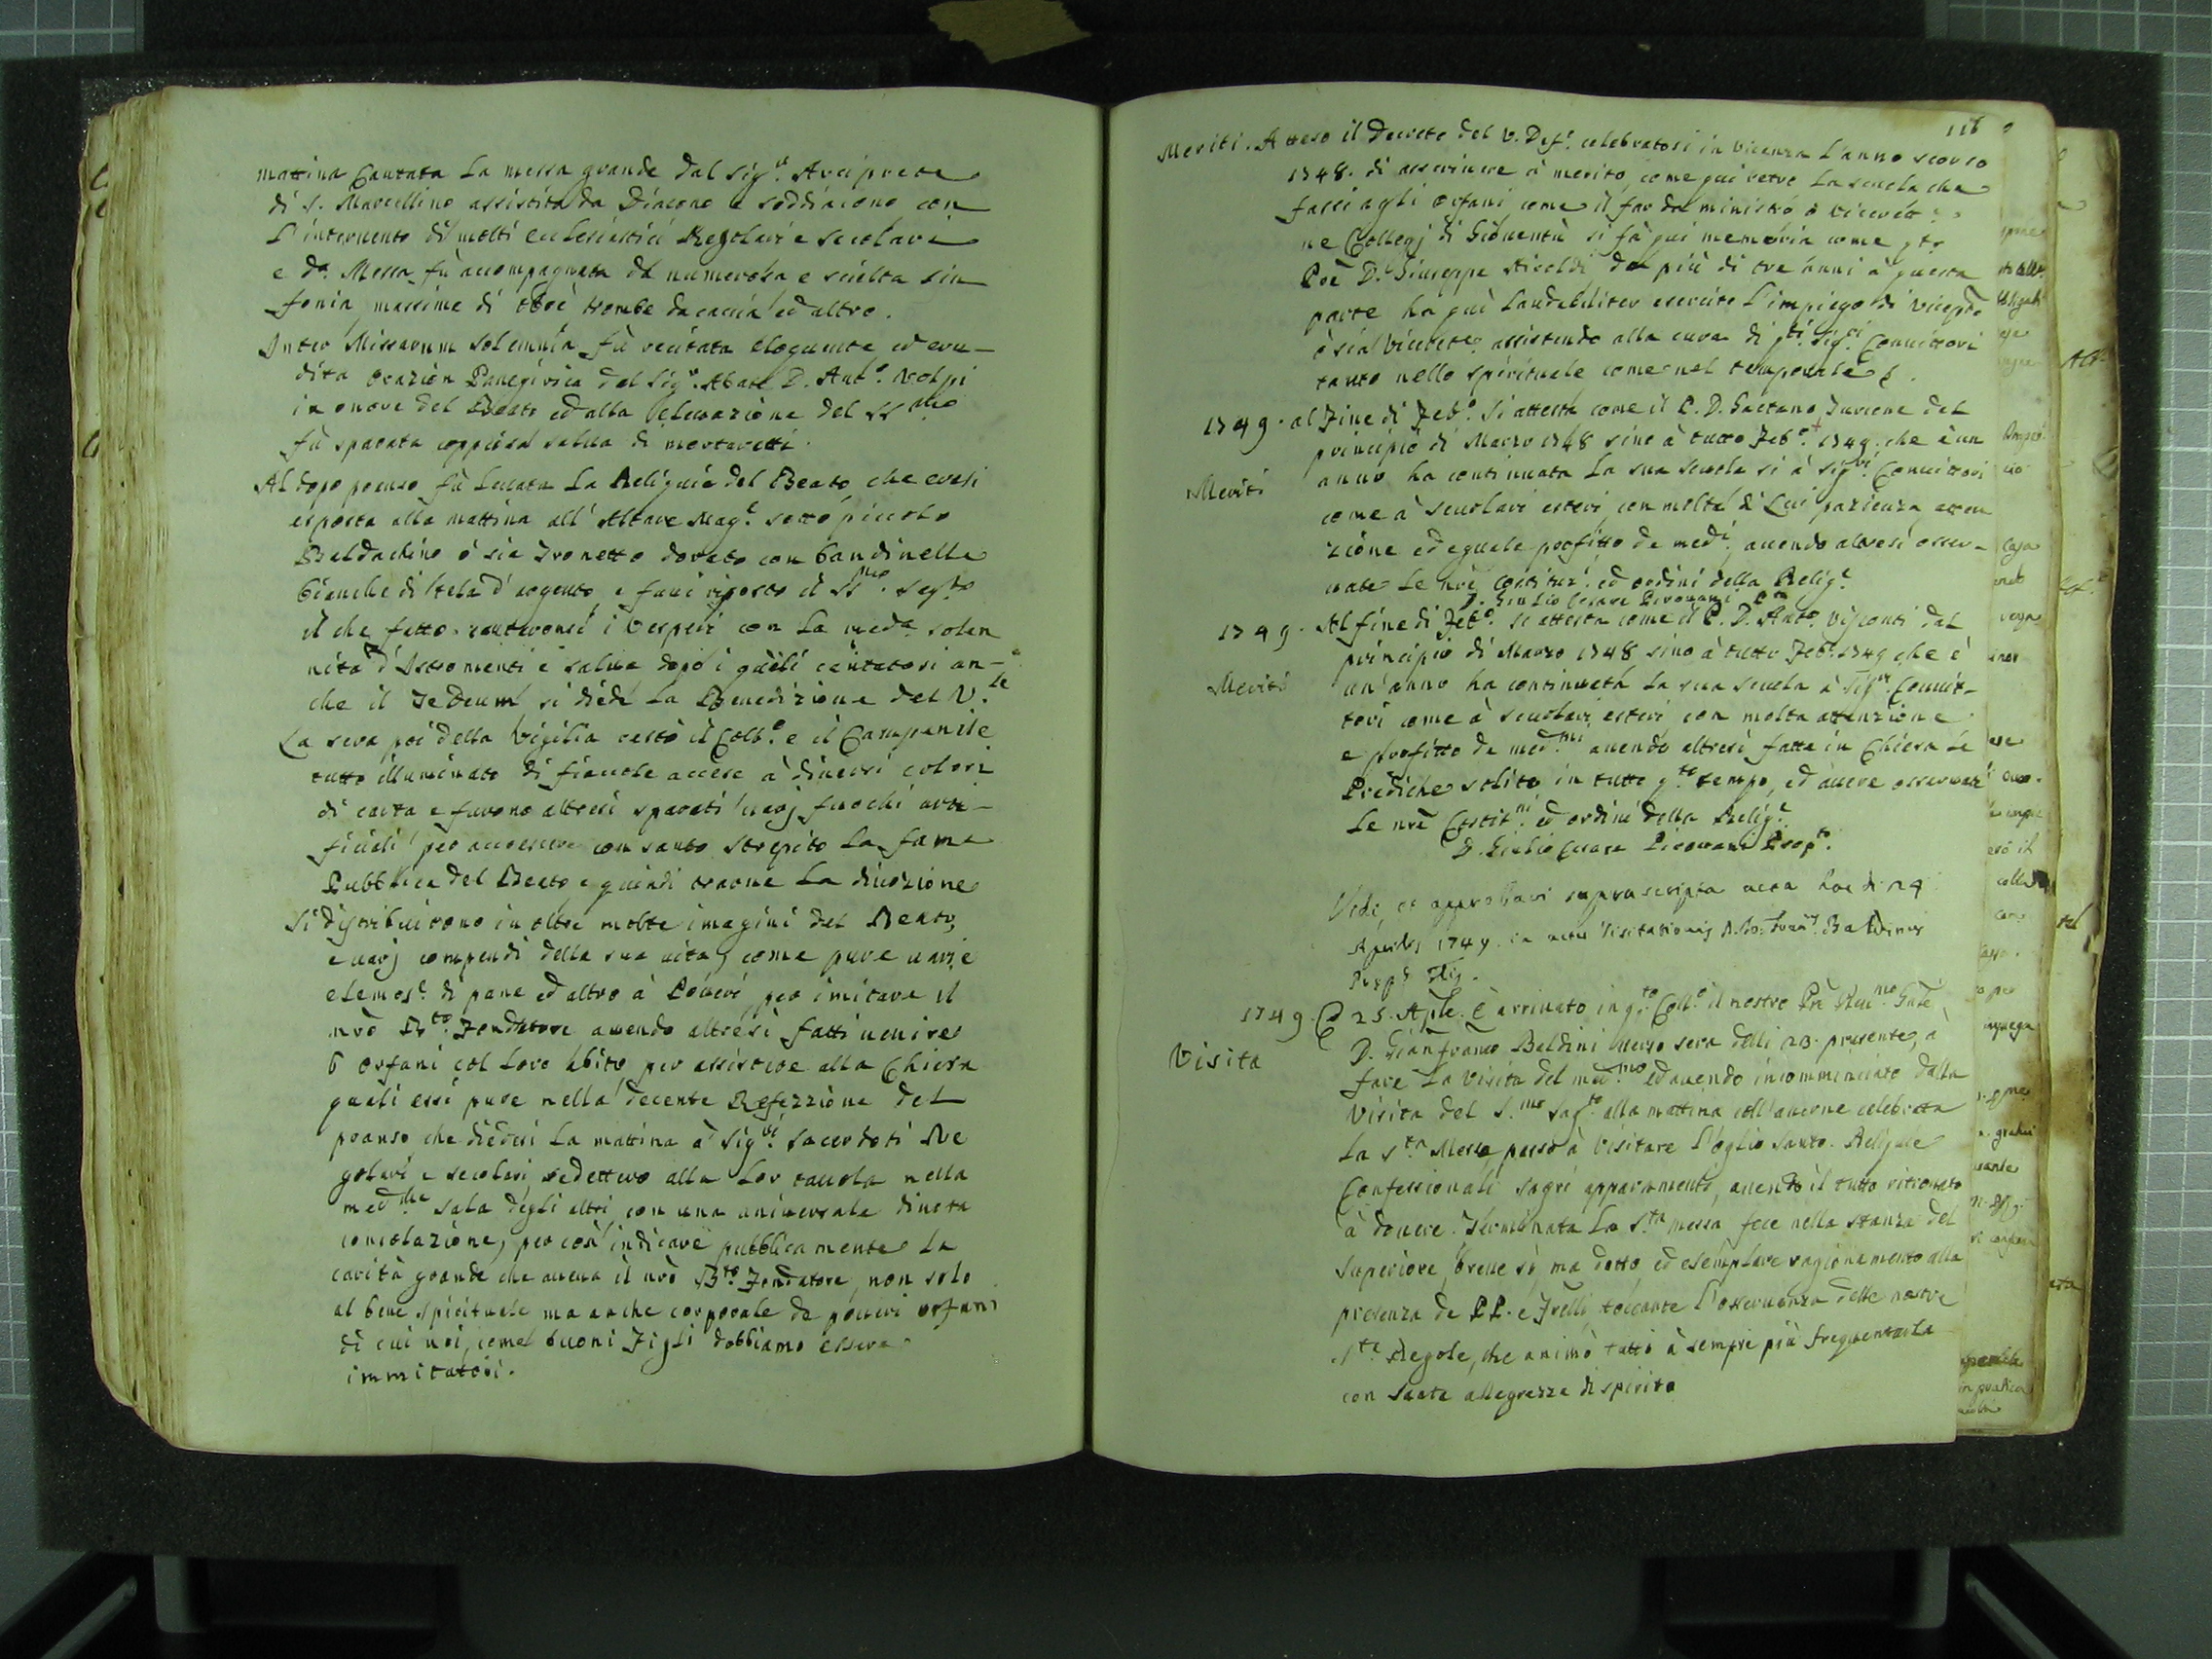 mattina Cantata la messa grande dal Sigr. Arciprete
di S. Marcellino assistita da Diacono e soddiacono con
l'interuento di molti ecclesiastici Regolari e secolari
e da. Messa fù accompagnata da numerosa e scielta sin
fonia massime di Oboè trombe da caccia ed altro.
Inter Missarum solemnia fù recitata eloquente ed eru-
dita orazion Panegirica dal Sigr. Abate D. Anto. Volpi
in onore del Beato ed alla eleuazione del SSmo
fù sparata coppiosa salua di mortaretti.
Al dopo pranso fù leuata la Reliquia del Beato che erasi
esposta alla mattina all' Altare Mage. sotto piccolo
Baldachino ò sia Tronetto dorato con bandinelle
bianche di tela d'argento, e fuui riposto il SSmo. Sagto
il che fatto cantaronsi i Vesperi con la meda. solen
nità d'Istromenti e salua dopo i quali cantatosi an-
che il Te Deum si diede la Benedizione del V.le
La sera poi della Vigilia restò il Collo. e il Campanile
tutto illuminato di fiaccole accese à diuersi colori
di carta e furono altresi sparati uarj fuochi arti-
ficiali per accrescere con santo strepito la fama
Pubblica del Beato e quindi trarne la diuozione
Si distribuirono in oltre molte imagini del Beato,
e uarj compendi della sua uita, come pure uarie
elemose. di pane ed altro à Poueri per imitare il
nrò Bto. Fondatore auendo altresì fatti uenire
6 orfani col loro abito per assistere alla Chiesa
quali essi pure nella decente Refezzione del
pranso che diedesi la mattina à Sigri. Sacerdoti Re
golari e secolari sedettero alla lor tauola nella
medma sala degli altri con una uniuersale diuota
consolazione, per così indicare pubblicamente la
carità grande che aueua il nrò Bto. Fondatore, non solo
al bene spirituale ma anche corporale de poueri orfani
di cui noi, come buoni Figli dobbiamo essere
immitatori.
116
Meriti. Atteso il Decreto del V. Defo. celebratosi in Vicenza l'anno scorso
1748. di asscriuere à merito, come qui retro la scuola che
fassi agli orfani come il far da ministro ò
ne Collegj di Giouentù si fà qui memoria come
D. Giuseppe Riualdi da più di tre anni à questa
parte ha qui laudabiliter esercito l'impiego di
ò sia assistendo alla cura di Sigri Conuittori
tanto nello spirituale come nel temporale
1749. al Fine di Febo. Si attesta come il P. D. Gaetano dal
principio di Marzo 1748 sino à tutto Febo. 1749. che è un
Meriti anno ha continuata la sua scuola si à Sigri Conuittori
come à scuolari esteri, con molta di Lui pazienza atten
zione ed eguale profitto de medi, auendo altresi osser-
uate le nrè Costituzi. ed ordini della Relige.
D. Giulio Cesare Pirouani
1749. Al fine di Febo. si attesta come il P. D. Anto. Visconti dal
principio di Marzo 1748 sino à tutto Febo. 1749 che è
Meriti un'anno ha continuata la sua scuola à Sigri. Conuit-
tori come à scuolari esteri con molta attenzione
e profitto de medmi. auendo altresi fatte in Chiesa le
Prediche solite in tutto qto. tempo, ed auere osseruate
le nrè Costitni. ed ordini della Relige.
D. Giulio Cesare Pirouani Prepto.
Vidi, et approbaui suprascripta acta hac die 24
Aprilis 1749. in actu Visitationis Baldinus
1749. 25. Aple. È arriuato in qto Collo. il nostro Pre
Visita D. Gianfranco Baldini uerso sera delli 23. presente, à
fare la Visita del medmo. ed auendo incomminciato dalla
Visita del S.mo Sagto alla mattina coll'auerne celebrata
la S.ta Messa passò à Visitare l'oglio Santo. Reliquie
Confessionali sagri apparamenti, auendo il tutto ritrouato
à douere. Terminata la S.ta messa fece nella stanza del
Superiore, breue sì ma dotto, ed esemplare ragionamento alla
presenza de PP. e Frelli, toccante l'osseruanza delle nostre
S.te Regole, che animò tutti à sempre più frequentarla
con Santa allegrezza di spirito